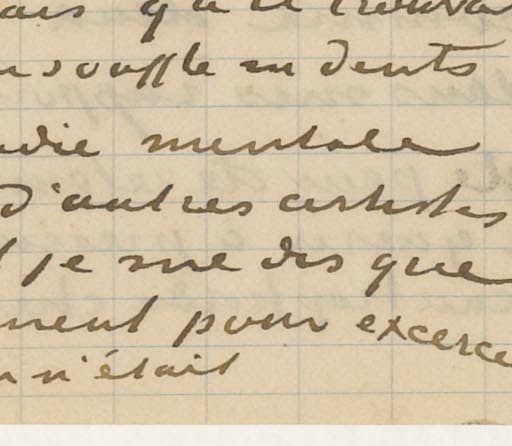 qu'il trouva
souffle ardents
die mentale
d'autres artistes
je me dis que
ment pour excerce
n'était